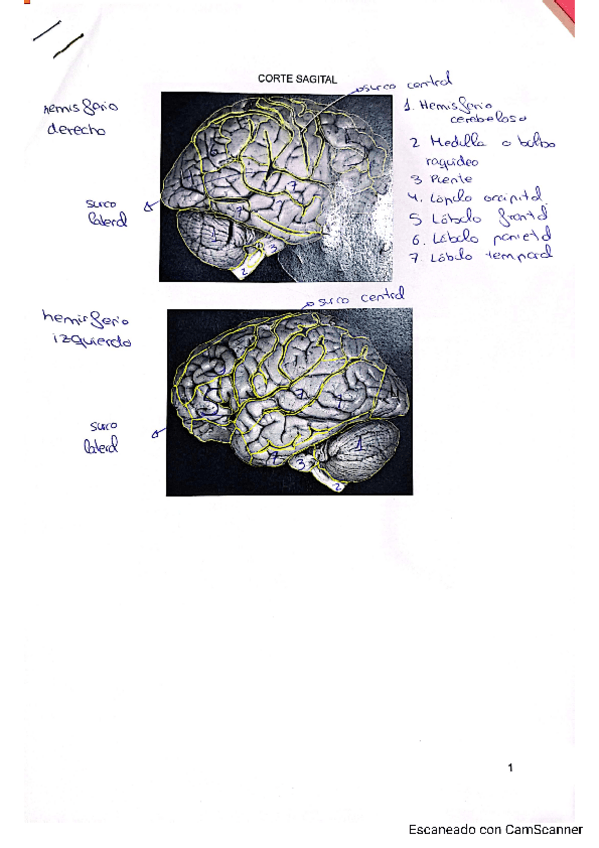 CORTE SAGITAL
surco central
hemisferio
derecho
1. Hemisferio
cerebeloso
2 Medulla o bulbo
raquideo
3 Puente
4. Lóbulo occipital
5 Lóbulo frontal
6. Lóbulo parietal
7. Lóbulo temporal
surco
lateral
6
7
7
3
2
surco central
hemisferio
izquierdo
surco
lateral
1
3
2
1
Escaneado con CamScanner